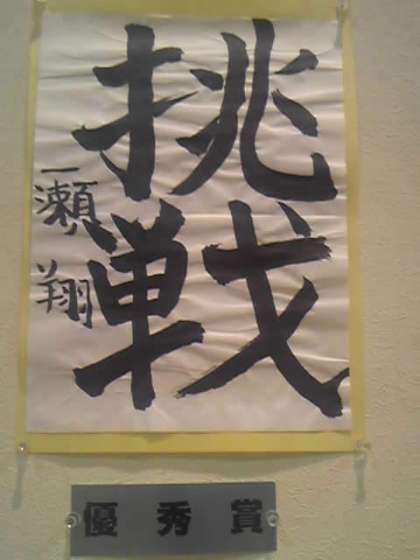 挑戦
一瀬翔
優秀賞